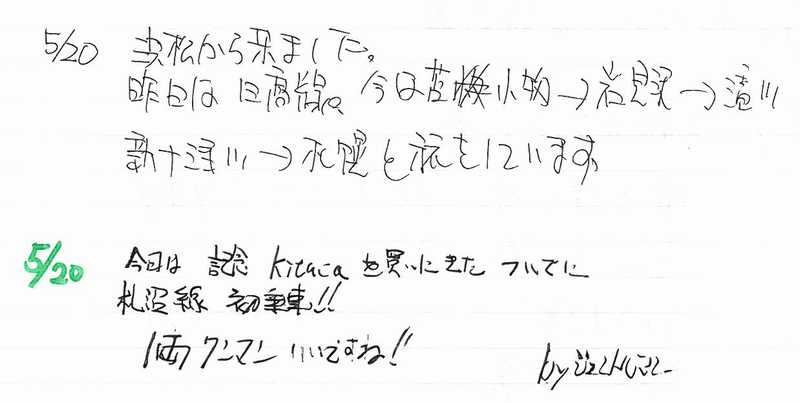 5/20 浜松から来ました。
昨日は日高線。今日は苫小牧→岩見沢→滝川
新十津川→札幌と旅をしています
5/20 今日は 記念 Kitaca を買いにきた ついでに
札沼線 初乗車!!
1両ワンマン いいですね!
by